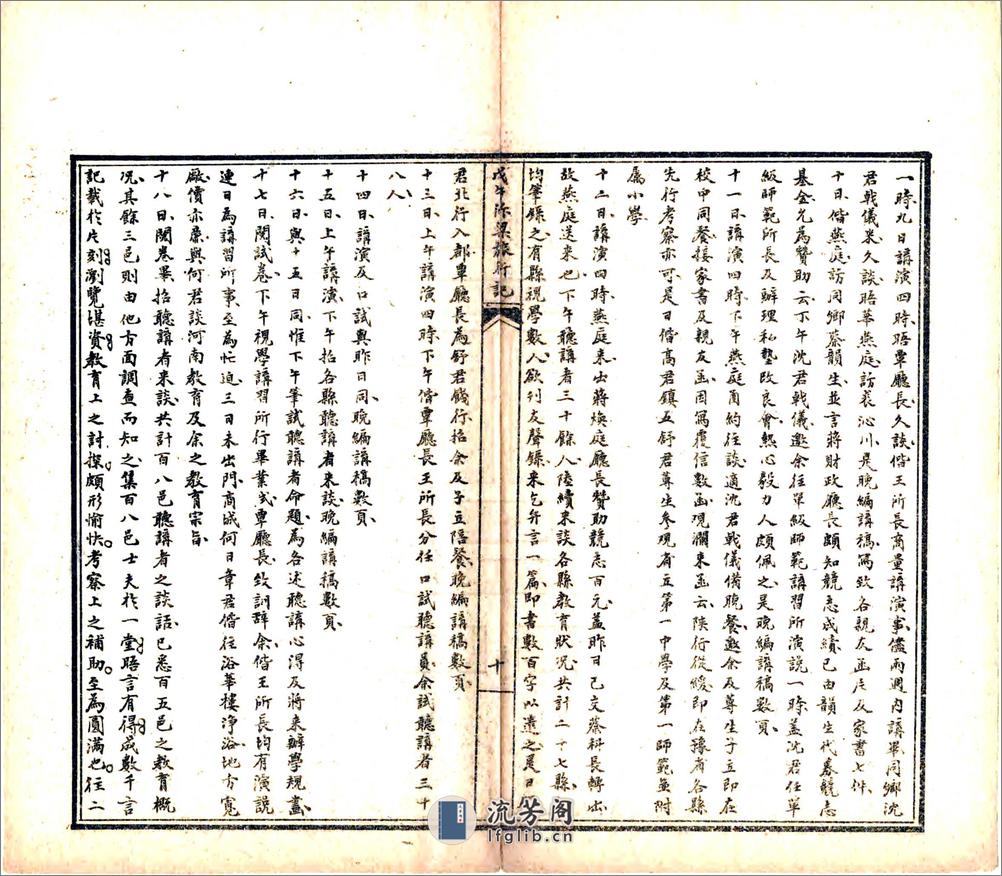 一時九日講演四時晤覃廳長久談偕王所長商量講演事儘兩週內講畢同鄉沈
君戟儀來久談晤華燕庭訪裘沁川是晚編講稿寫致各親友函片及家書七件
十日偕燕庭訪同鄉蔡韻生並言將財政廳長頗知競志成績已由韻生代募競志
基金允為贊助云下午沈君戟儀邀余往單級師範講習所演說一時蓋沈君任單
級師範所長及辦理私塾改良會熱心毅力人頗佩之是晚編講稿數頁
十一日講演四時下午燕庭函約往談適沈君戟儀備晚餐邀余及尊生子立即在
校中同餐接家書及親友函因寫覆信數函現瀾來函云陝行從緩即在豫省各縣
先行考察亦可是日偕高君鎮五舒君尊生參現省立第一中學及第一師範並附
屬小學
十二日講演四時燕庭來出將煥庭廳長贊助競志百元蓋昨日已交蔡科長轉出
故燕庭送來也下午聽講者三十餘人陸續來談各縣教育狀況共計二十七縣
均筆錄之有縣視學數人欲刊友聲錄來乞弁言一篇即書數百字以遺之是日
戊午游梁旅行記
十
君北行入都覃廳長為舒君餞行招余及子立陪餐晚編講稿數頁
十三日上午講演四時下午偕覃廳長王所長分任口試聽講員余試聽講者三十
八人
十四日講演及口試與昨日同晚編講稿數頁
十五日上午講演下午招各縣聽講者來談晚編講稿數頁
十六日與十五日同惟下午筆試聽講者命題為各述聽講心得及將來辦學規畫
十七日閱試卷下午視學講習所行畢業式覃廳長致訓辭余偕王所長均有演說
連日為講習所事至為忙迫三日未出門商城何日章君偕往浴華樓淨浴地方寬
敞價亦廉與何君談河南教育及余之教育宗旨
十八日閱卷畢招聽講者來談共計百八邑聽講者之談話已悉百五邑之教育概
況其餘三邑則由他方面調查而知之集百八邑士夫於一堂晤言有得成數千言
記載於片刻瀏覽堪資教育上之討探頗形愉快考察上之補助至為圓滿也往二
流芳阁
lfglib.cn